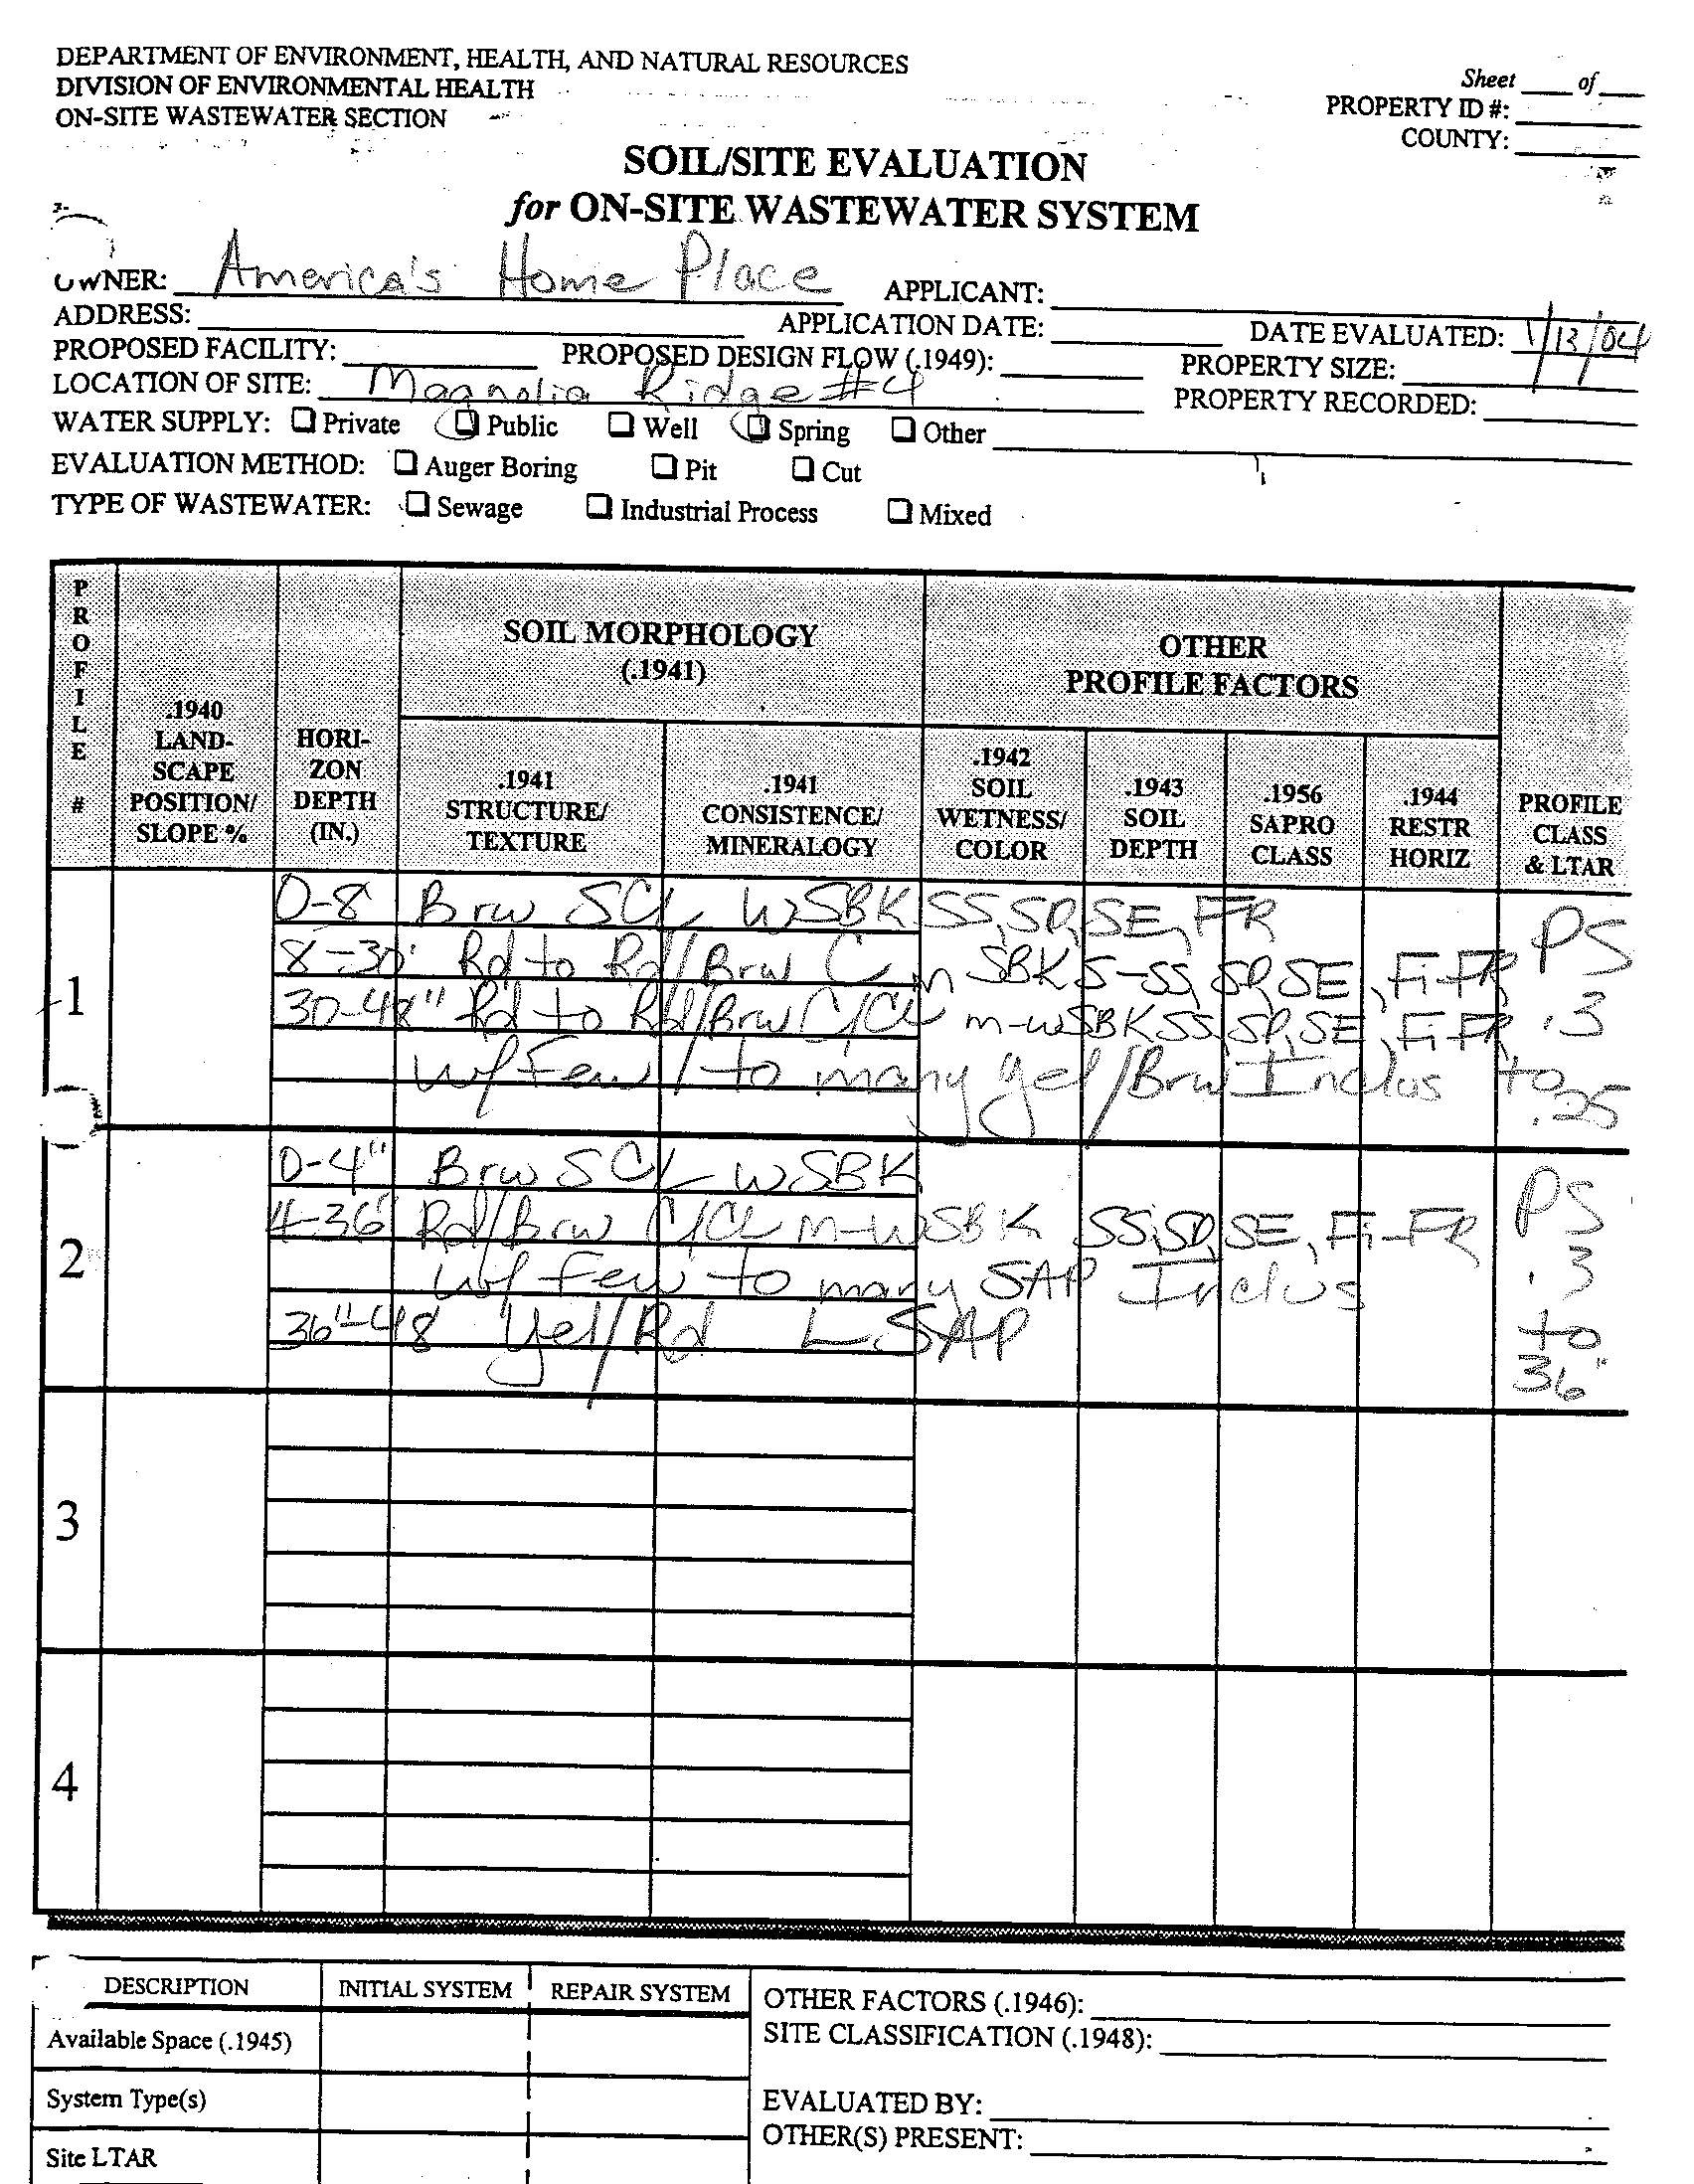 DEPARTMENT OF ENVIRONMENT, HEALTH, AND NATURAL RESOURCES
DIVISION OF ENVIRONMENTAL HEALTH
ON-SITE WASTEWATER SECTION
Sheet ____ of ____
PROPERTY ID #:
COUNTY:
SOIL/SITE EVALUATION
for ON-SITE WASTEWATER SYSTEM
OWNER: America's Home Place APPLICANT:
ADDRESS: APPLICATION DATE: DATE EVALUATED: 1/13/04
PROPOSED FACILITY: PROPOSED DESIGN FLOW (.1949): PROPERTY SIZE:
LOCATION OF SITE: Magnolia Ridge #4 PROPERTY RECORDED:
WATER SUPPLY: ❑ Private ❑ Public ❑ Well ❑ Spring ❑ Other
EVALUATION METHOD: ❑ Auger Boring ❑ Pit ❑ Cut
TYPE OF WASTEWATER: ❑ Sewage ❑ Industrial Process ❑ Mixed
PROFILE #
.1940 LAND-SCAPE POSITION/ SLOPE %
HORI-ZON DEPTH (IN.)
SOIL MORPHOLOGY (.1941)
.1941 STRUCTURE/ TEXTURE
.1941 CONSISTENCE/ MINERALOGY
OTHER PROFILE FACTORS
.1942 SOIL WETNESS/ COLOR
.1943 SOIL DEPTH
.1956 SAPRO CLASS
.1944 RESTR HORIZ
PROFILE CLASS & LTAR
1
0-8 Brw SCL wSBK SS, SP, SE, FR
8-30" Rd to Rd/Brw C m SBK S-SS, SP, SE, Fi-FR
30-48" Rd to Rd/Brw C/CL m-wSBK SS, SP, SE, Fi-FR
w/ Few / to many yel/Brw Inclus
PS
.3
to
.25
2
0-4" Brw SCL wSBK
4-36" Rd/Brw C/CL m-wSBK SS, SP, SE, Fi-FR
w/ few to many SAP Inclus
36"-48 Yel/Rd L SAP
PS
.3
to
36"
3
4
DESCRIPTION INITIAL SYSTEM REPAIR SYSTEM
Available Space (.1945)
System Type(s)
Site LTAR
OTHER FACTORS (.1946):
SITE CLASSIFICATION (.1948):
EVALUATED BY:
OTHER(S) PRESENT: